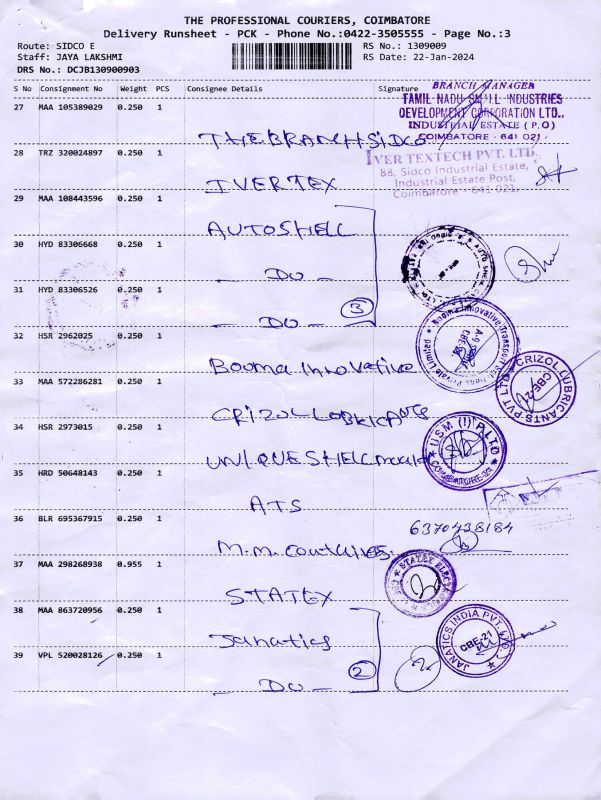 THE PROFESSIONAL COURIERS, COIMBATORE
Delivery Runsheet - PCK - Phone No.:0422-3505555 - Page No.:3
Route: SIDCO E RS No.: 1309009
Staff: JAYA LAKSHMI RS Date: 22-Jan-2024
DRS No.: DCJB130900903
S No Consignment No Weight PCS Consignee Details Signature
BRANCH MANAGER
TAMIL NADU SMALL INDUSTRIES
DEVELOPMENT CORPORATION LTD.,
INDUSTRIAL ESTATE (P.O)
COIMBATORE - 641 021.
27 MAA 105389029 0.250 1
THE BRANCH SIDCO
IVER TEXTECH PVT. LTD.
88, Sidco Industrial Estate,
Industrial Estate Post,
Coimbatore - 641 021.
28 TRZ 320024897 0.250 1
IVERTEX
29 MAA 108443596 0.250 1
AUTOSHELL
30 HYD 83306668 0.250 1
DO
31 HYD 83306526 0.250 1
DO 3
32 HSR 2962025 0.250 1
Booma Innovative
Booma Innovative Transport
Private Limited
33 MAA 572286281 0.250 1
CRIZOL LUBRICANTS PVT LTD
CBE-21
34 HSR 2973015 0.250 1
UNIQUE SHELL
USM (I) P LTD
COIMBATORE-21
35 HRD 50648143 0.250 1
ATS
36 BLR 695367915 0.250 1
6370438184
M.M.
37 MAA 298268938 0.955 1
STATEX
STATEX
38 MAA 863720956 0.250 1
Janatics
JANATICS INDIA PVT. LTD.
CBE-21
39 VPL 520028126 0.250 1
DO 2